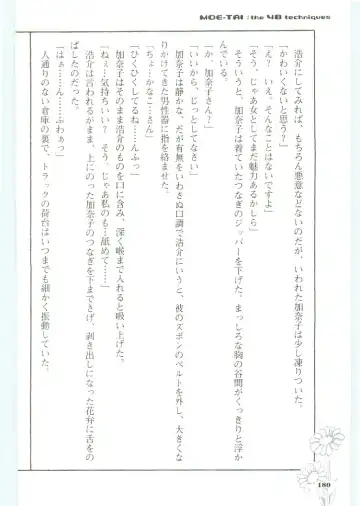 MOE-TAI : the 48 techniques
浩介にしてみれば、もちろん悪意などないのだが、いわれた加奈子は少し凍りついた。
「かわいくないと思う？」
「え？　いえ。そんなことはないですよ」
「そう、じゃあ女としてまだ魅力あるかしら」
そういうと、加奈子は着ていたつなぎのジッパーを下げた。まっしろな胸の谷間がくっきりと浮か
んでいる。
「か、加奈子さん？」
「いいから、じっとしてなさい」
加奈子は静かな、だが有無をいわさぬ口調で浩介にいうと、彼のズボンのベルトを外し、大きくな
りかけてきた男性器に指を絡ませた。
「ちょ…かなこ…さん」
「ひくひくしてるね…んふっ」
加奈子はそのまま浩介のものを口に含み、深く喉まで入れると吸い上げた。
「ねぇ…気持ちいい？　そう。じゃあ私のも…舐めて……」
浩介は言われるがまま、上にのった加奈子のつなぎを下までさげ、剥き出しになった花弁に舌をの
ばしたのだった。
「はぁ……ん……ふわぁっ」
人通りのない倉庫の裏で、トラックの荷台はいつまでも細かく振動していた。
180